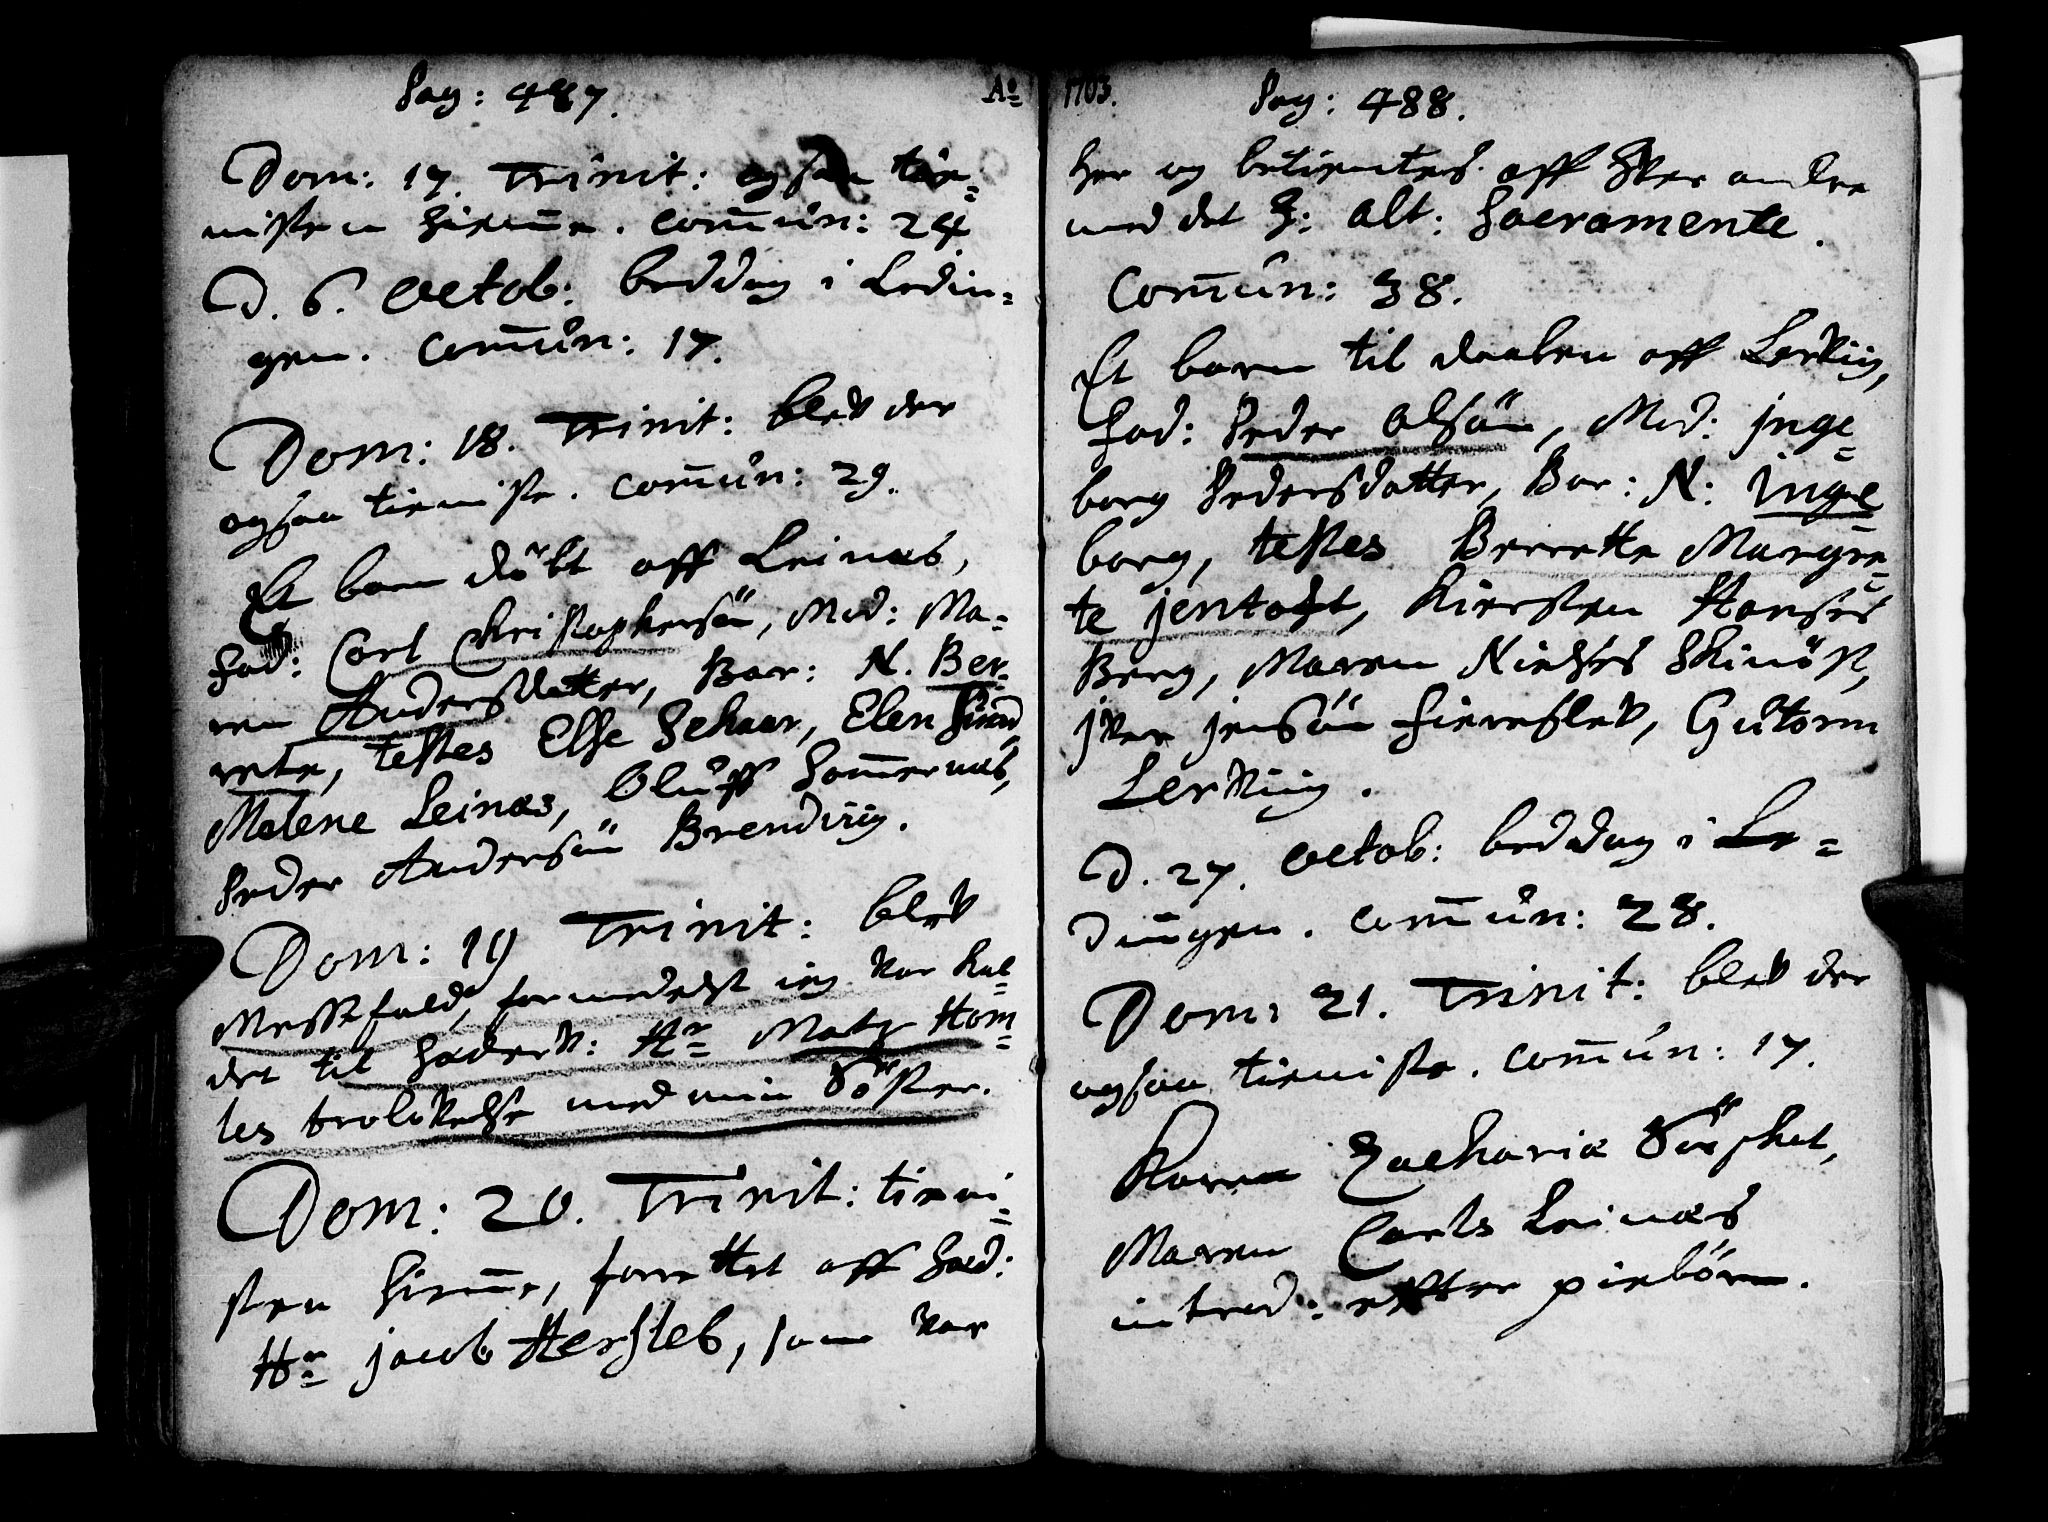 Pag: 487.
Aō
Dom: 17. Trinit: ogsaa tie-
nisten hiem̄e. com̄ůn: 24
D. 6. Octob: beddag i Lødin-
gen. Com̄ůn: 17.
Dom: 18. Trinit: blev der
ogsaa tieniste. Com̄ůn: 29.
Et barn döbt aff Leinæs,
Fad: Carl Christophersön, Mod: Ma-
ren Andersdatter, Bar: N. Ber-
rete, testes Else Schaar, Elen
Malene Leinæs, Olůff Som̄ernæs,
Peder Andersön Brendviig.
Dom: 19 Trinit: blev
Messefald, formedelst ieg var kal-
det til Hr Matz Hom-
les trolovelse med min Söster.
Dom: 20. Trinit: tieni-
sten hiem̄e, forrettet aff
Hr jacob Hersleb, som var
1703.
Pag: 488.
her og betientes aff hver andre
med det H: Alt: Sacramente.
Com̄ůn: 38.
Et barn til daaben aff Lerviig,
Fad: Peder Olsön, Mod: jnge-
borg Pedersdatter, Bar: N: Inge-
borg, testes Berrette Margre-
te jentoft, Kiersten Hanses
Berg, Maren Nielses
jver jensön Fiereslev, Gůtorm
Lerviig.
D. 27. Octob: beddag i Lø-
dingen. Com̄ůn: 28.
Dom: 21. Trinit: blev der
ogsaa tieniste. Com̄ůn: 17.
Karen Zachariæ
Maren Carls Leinæs
introd: effter piebörn.